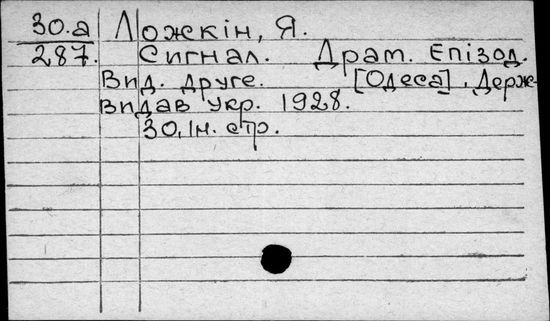 30.а Ложкін, Я.
287. Сигнал. Драт. Епізод.
Вид. друге. [Одеса], Держ-
видав Укр. 1928.
30, Ін. стр.